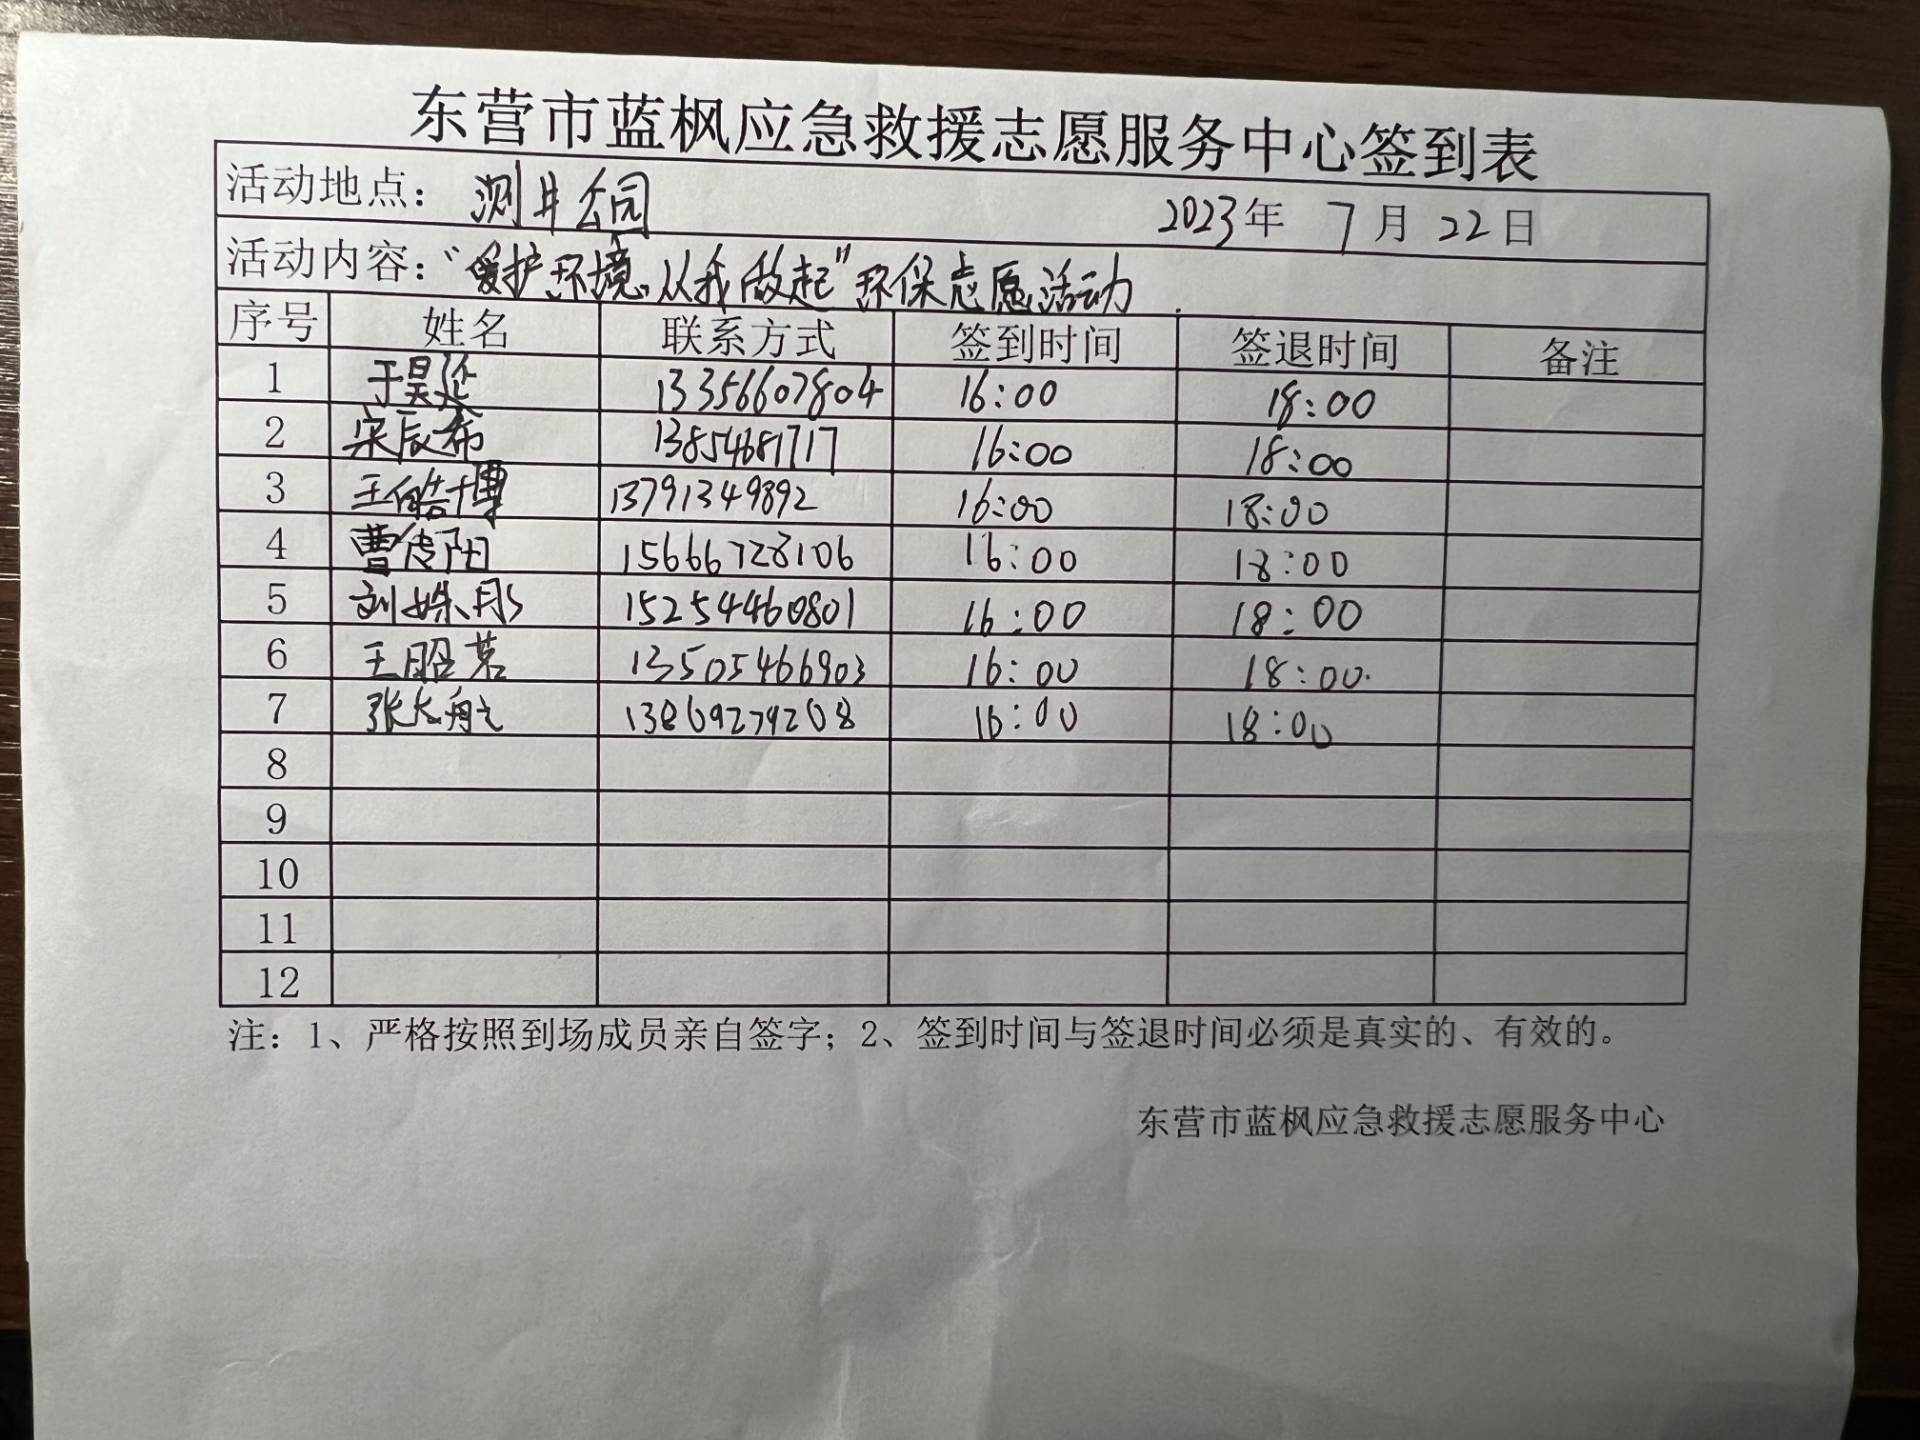 东营市蓝枫应急救援志愿服务中心签到表
活动地点：测井公园 2023年 7月 22日
活动内容：“爱护环境，从我做起”环保志愿活动.
序号 姓名 联系方式 签到时间 签退时间 备注
1 于昊延 13356607804 16:00 18:00
2 宋辰希 13854681717 16:00 18:00
3 王皓博 13791349892 16:00 18:00
4 曹 阳 15666728106 16:00 18:00
5 刘姝彤 15254460801 16:00 18:00
6 王昭茗 13505466903 16:00 18:00.
7 张大航 13869279208 16:00 18:00
8
9
10
11
12
注：1、严格按照到场成员亲自签字；2、签到时间与签退时间必须是真实的、有效的。
东营市蓝枫应急救援志愿服务中心